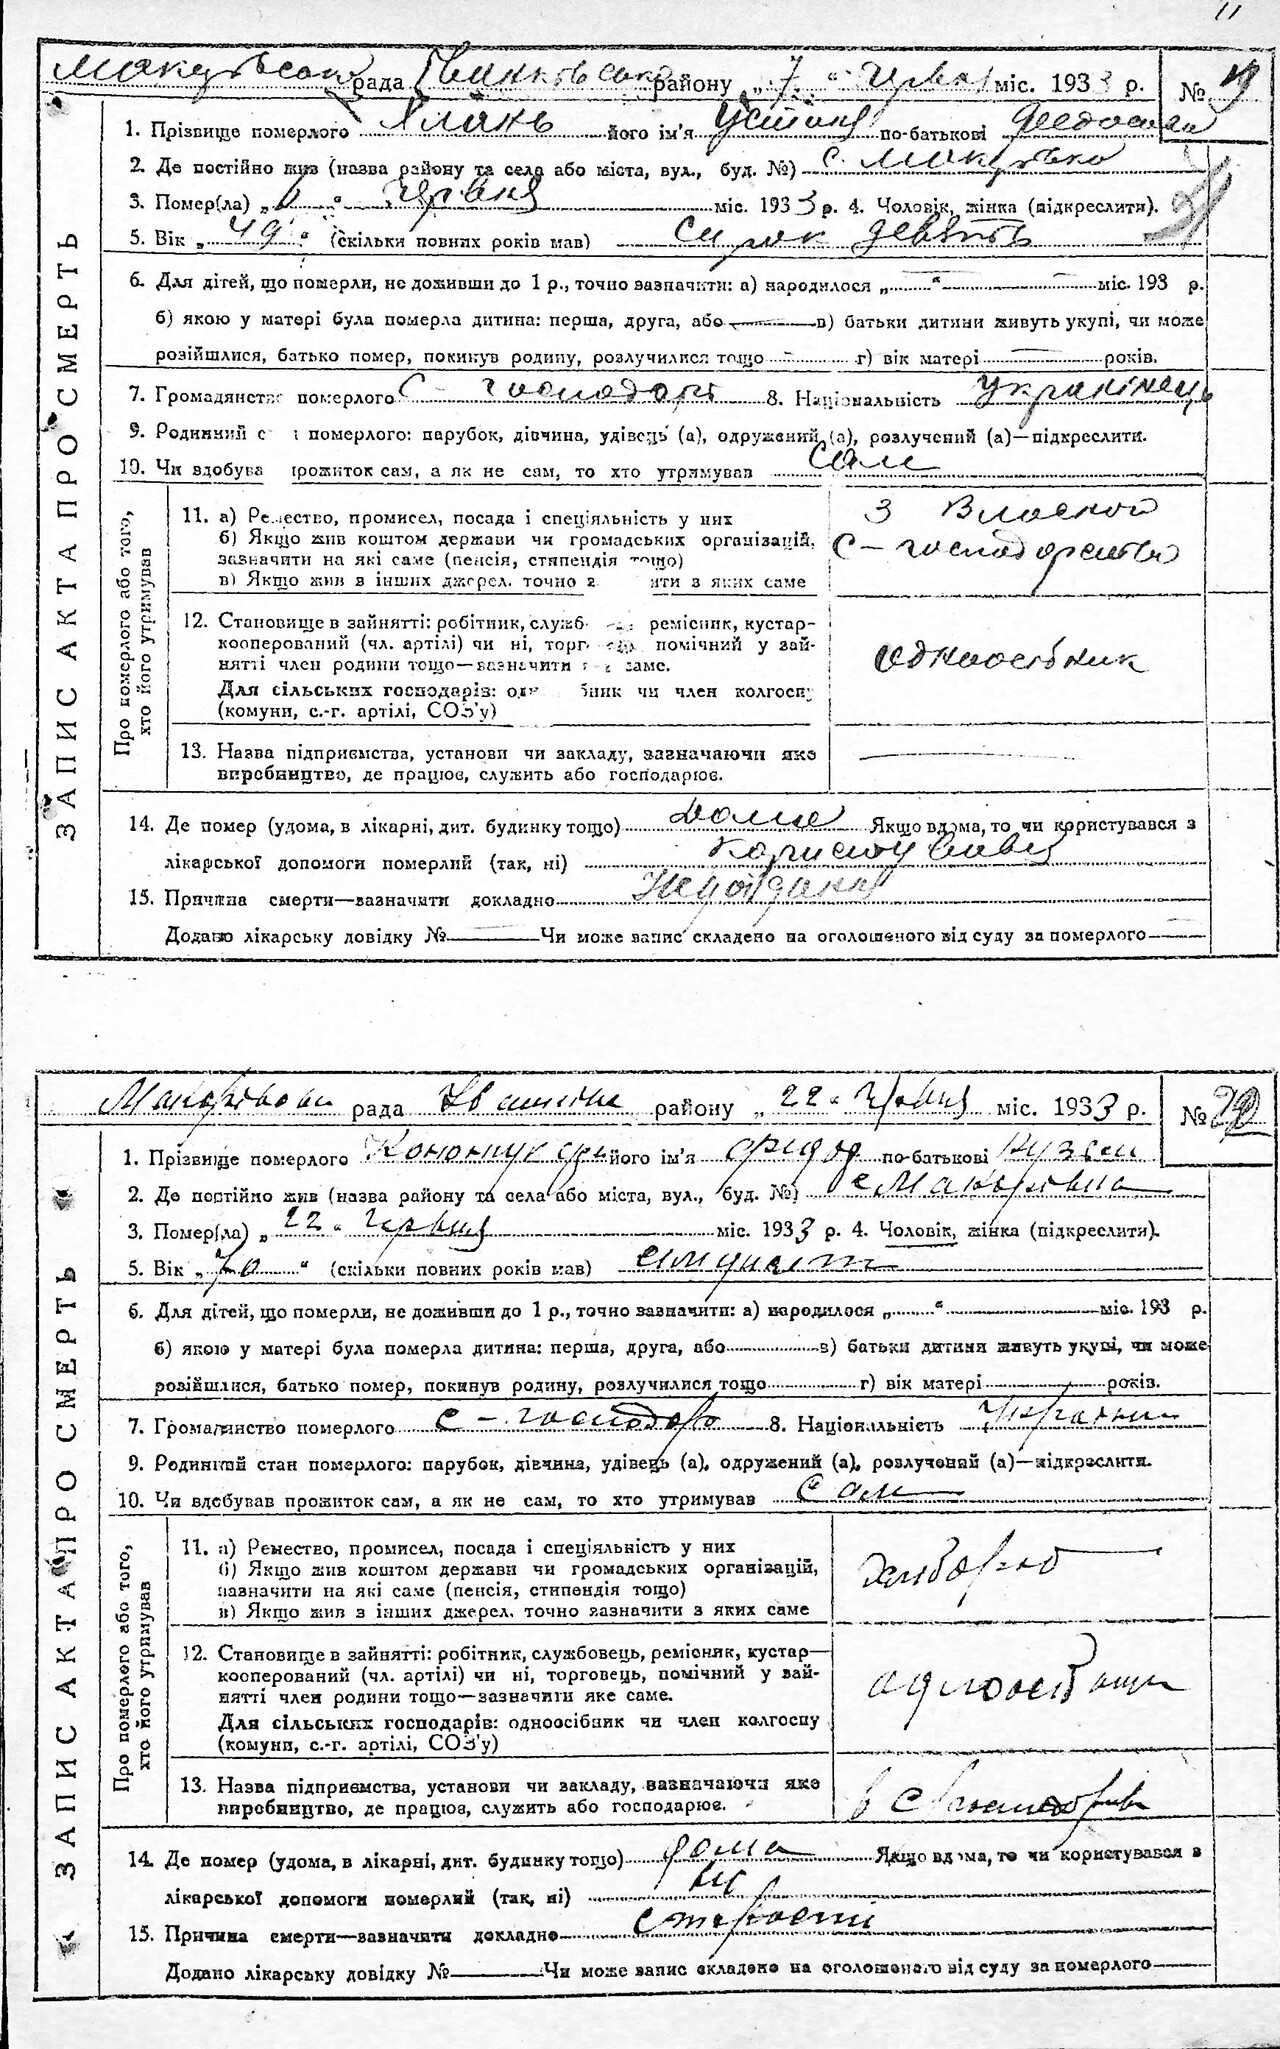 11
рада району „ 7 “ червня міс. 1933 р. № 19
ЗАПИС АКТА ПРО СМЕРТЬ
1. Прізвище померлого його ім'я Устина по-батькові
2. Де постійно жив (назва району та села або міста, вул., буд. №) с.
3. Помер(ла) „ “ червня міс. 1933 р. 4. Чоловік, жінка (підкреслити).
5. Вік „ 49 “ (скільки повних років мав) сорок девять
6. Для дітей, що померли, не доживши до 1 р., точно зазначити: а) народилося „ “ міс. 193 р.
б) якою у матері була померла дитина: перша, друга, або в) батьки дитини живуть укупі, чи може
розійшлися, батько помер, покинув родину, розлучилися тощо г) вік матері років.
7. Громадянство померлого с-господар 8. Національність українець
9. Родинний с померлого: парубок, дівчина, удівець (а), одружений (а), розлучений (а)—підкреслити.
10. Чи здобува прожиток сам, а як не сам, то хто утримував сам
Про померлого або того,
хто його утримував
11. а) Ремество, промисел, посада і спеціяльність у них
б) Якщо жив коштом держави чи громадських організацій,
зазначити на які саме (пенсія, стипендія тощо)
в) Якщо жив з інших джерел, точно з яких саме
З власного
с-господарства
12. Становище в зайнятті: робітник, служб ремісник, кустар-
кооперований (чл. артілі) чи ні, торг помічний у зай-
нятті член родини тощо—зазначити саме.
Для сільських господарів: од бник чи член колгоспу
(комуни, с.-г. артілі, СОЗ'у)
одноосібник
13. Назва підприємства, установи чи закладу, зазначаючи яке
виробництво, де працює, служить або господарює.
14. Де помер (удома, в лікарні, дит. будинку тощо) дома Якщо вдома, то чи користувався з
лікарської допомоги померлий (так, ні) користувався
15. Причина смерти—зазначити докладно Недоїдання
Додано лікарську довідку № Чи може запис складено на оголошеного від суду за померлого
рада району „ 22 “ червня міс. 1933 р. № 20
ЗАПИС АКТА ПРО СМЕРТЬ
1. Прізвище померлого його ім'я по-батькові
2. Де постійно жив (назва району та села або міста, вул., буд. №) с
3. Помер(ла) „ 22 “ червня міс. 1933 р. 4. Чоловік, жінка (підкреслити).
5. Вік „ 70 “ (скільки повних років мав)
6. Для дітей, що померли, не доживши до 1 р., точно зазначити: а) народилося „ “ міс. 193 р.
б) якою у матері була померла дитина: перша, друга, або в) батьки дитини живуть укупі, чи може
розійшлися, батько помер, покинув родину, розлучилися тощо г) вік матері років.
7. Громадянство померлого с-господар 8. Національність
9. Родинний стан померлого: парубок, дівчина, удівець (а), одружений (а), розлучений (а)—підкреслити.
10. Чи здобував прожиток сам, а як не сам, то хто утримував сам
Про померлого або того,
хто його утримував
11. а) Ремество, промисел, посада і спеціяльність у них
б) Якщо жив коштом держави чи громадських організацій,
зазначити на які саме (пенсія, стипендія тощо)
в) Якщо жив з інших джерел, точно зазначити з яких саме
хлібороб
12. Становище в зайнятті: робітник, службовець, ремісник, кустар—
кооперований (чл. артілі) чи ні, торговець, помічний у зай-
нятті член родини тощо—зазначити яке саме.
Для сільських господарів: одноосібник чи член колгоспу
(комуни, с.-г. артілі, СОЗ'у)
13. Назва підприємства, установи чи закладу, зазначаючи яке
виробництво, де працює, служить або господарює.
14. Де помер (удома, в лікарні, дит. будинку тощо) дома Якщо вдома, то чи користувався з
лікарської допомоги померлий (так, ні) ні
15. Причина смерти—зазначити докладно старости
Додано лікарську довідку № Чи може запис складено на оголошеного від суду за померлого